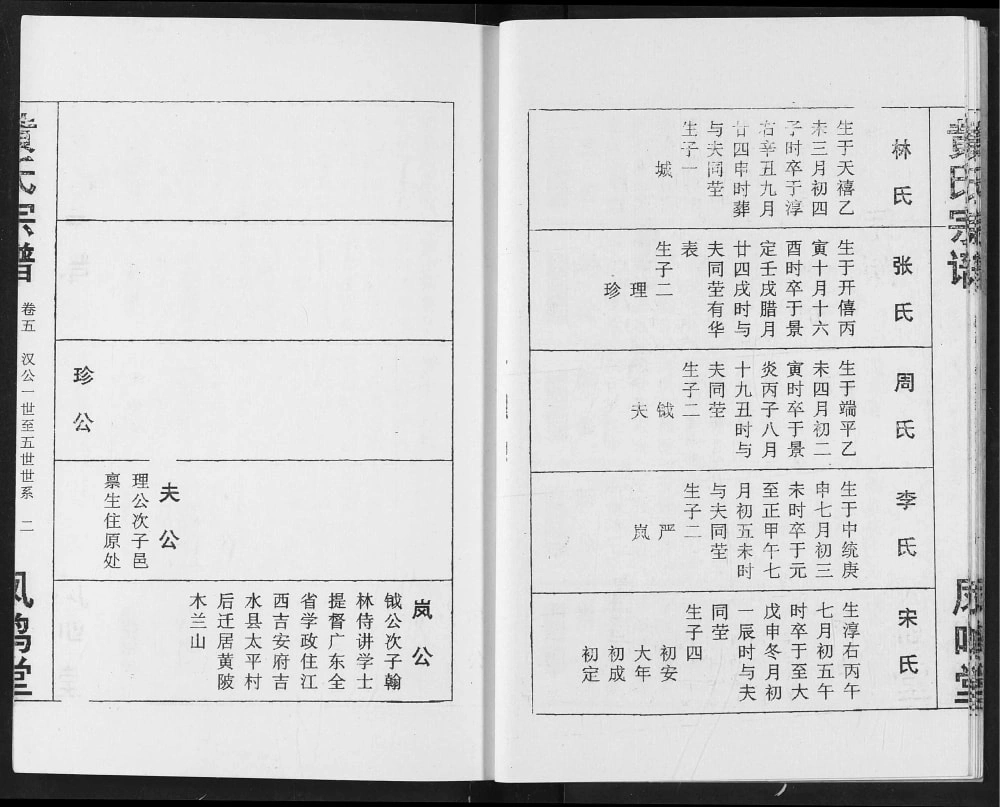 林氏
生于天禧乙
未三月初四
子时卒于淳
右辛丑九月
廿四申时葬
与夫同茔
生子一
城
张氏
生于开僖丙
寅十月十六
酉时卒于景
定壬戌腊月
廿四戌时与
夫同茔有华
表
生子二
理
珍
周氏
生于端平乙
未四月初二
寅时卒于景
炎丙子八月
十九丑时与
夫同茔
生子二
钺
夫
李氏
生于中统庚
申七月初三
未时卒于元
至正甲午七
月初五未时
与夫同茔
生子二
严
岚
宋氏
生淳右丙午
七月初五午
时卒于至大
戊申冬月初
一辰时与夫
同茔
生子四
初安
大年
初成
初定
珍公
夫公
理公次子邑
禀生住原处
岚公
钺公次子翰
林侍讲学士
提督广东全
省学政住江
西吉安府吉
水县太平村
后迁居黄陂
木兰山
氏宗谱
卷五 汉公一世至五世世系 二
凤鸣堂